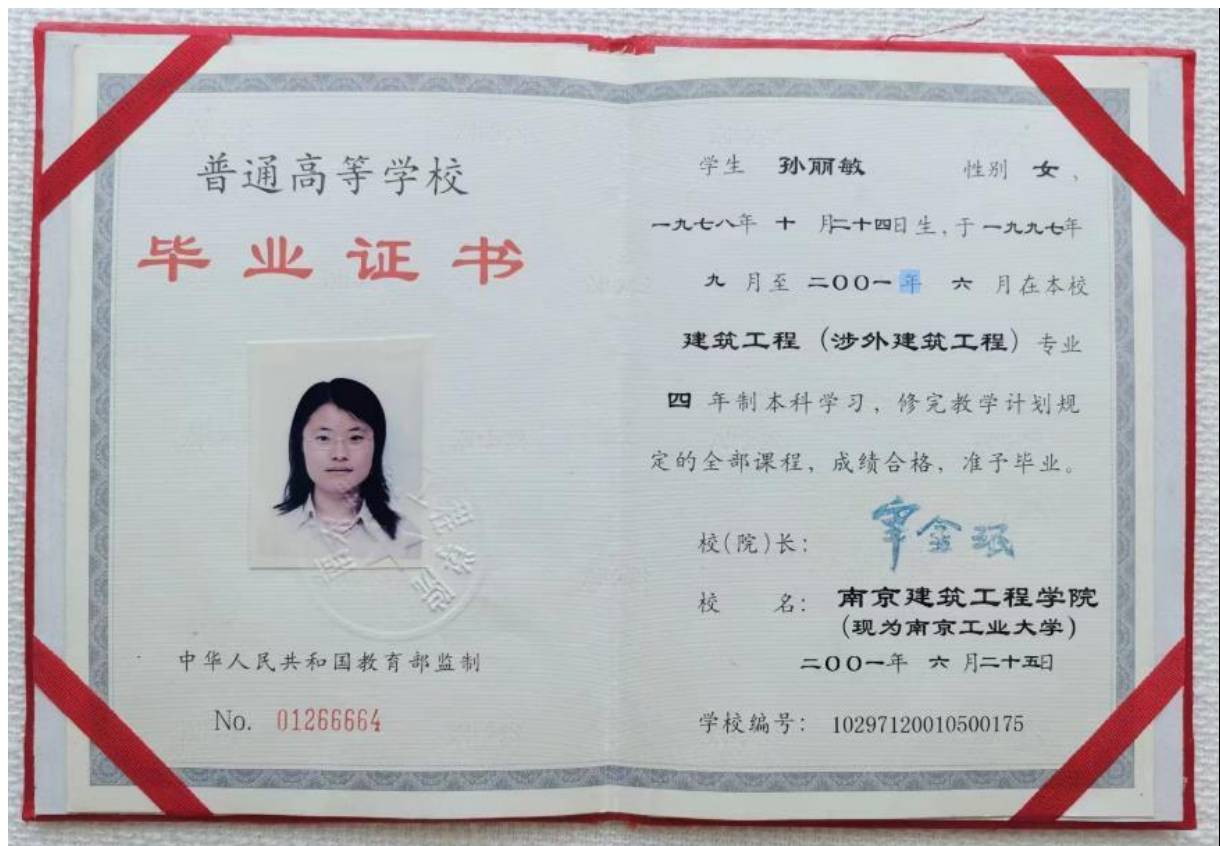 普通高等学校
毕业证书
中华人民共和国教育部监制
No. 01266664
学生 孙丽敏 性别 女,
一九七八年 十 月二十四日生,于一九九七年
九 月至 二OO一年 六 月在本校
建筑工程(涉外建筑工程)专业
四 年制本科学习,修完教学计划规
定的全部课程,成绩合格,准予毕业。
校(院)长:
校 名: 南京建筑工程学院
(现为南京工业大学)
二OO一年 六 月二十五日
学校编号: 10297120010500175